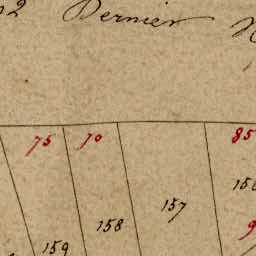 2 Dernier
75 70 85
157
158
159